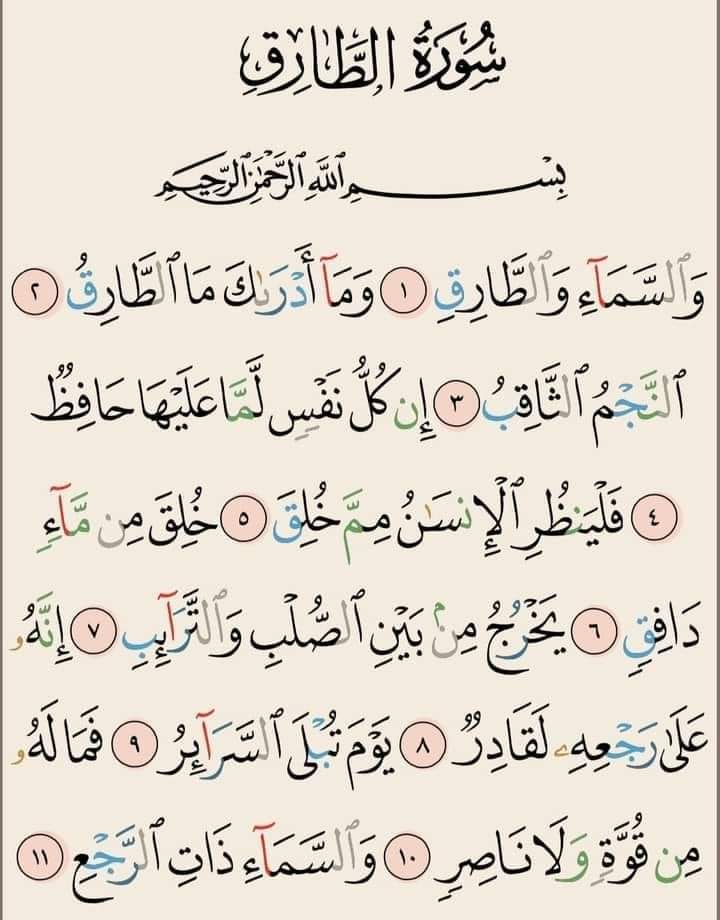 سُورَةُ الطَّارِقِ
بِسْمِ ٱللَّهِ ٱلرَّحْمَٰنِ ٱلرَّحِيمِ
وَٱلسَّمَآءِ وَٱلطَّارِقِ ١ وَمَآ أَدْرَىٰكَ مَا ٱلطَّارِقُ ٢
ٱلنَّجْمُ ٱلثَّاقِبُ ٣ إِن كُلُّ نَفْسٍ لَّمَّا عَلَيْهَا حَافِظٌ
٤ فَلْيَنظُرِ ٱلْإِنسَٰنُ مِمَّ خُلِقَ ٥ خُلِقَ مِن مَّآءٍ
دَافِقٍ ٦ يَخْرُجُ مِنۢ بَيْنِ ٱلصُّلْبِ وَٱلتَّرَآئِبِ ٧ إِنَّهُۥ
عَلَىٰ رَجْعِهِۦ لَقَادِرٌ ٨ يَوْمَ تُبْلَى ٱلسَّرَآئِرُ ٩ فَمَا لَهُۥ
مِن قُوَّةٍ وَلَا نَاصِرٍ ١٠ وَٱلسَّمَآءِ ذَاتِ ٱلرَّجْعِ ١١